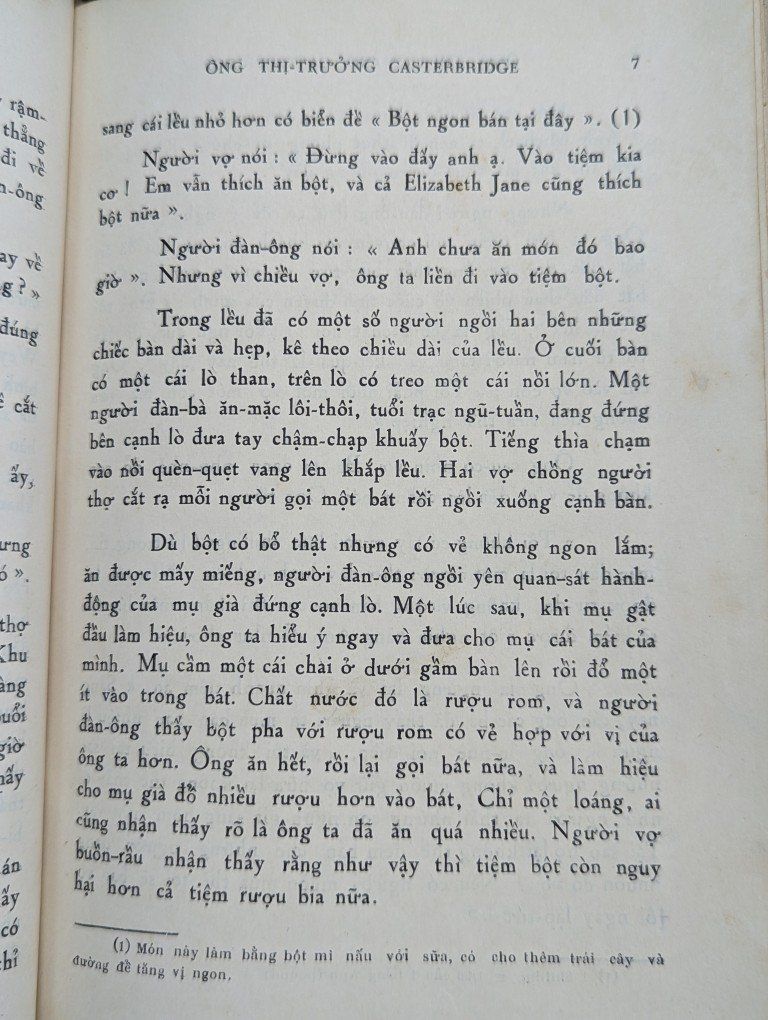 ÔNG THỊ-TRƯỞNG CASTERBRIDGE 7
sang cái lều nhỏ hơn có biển đề « Bột ngon bán tại đây ». (1)
Người vợ nói : « Đừng vào đấy anh ạ. Vào tiệm kia
cơ ! Em vẫn thích ăn bột, và cả Elizabeth Jane cũng thích
bột nữa ».
Người đàn-ông nói : « Anh chưa ăn món đó bao
giờ ». Nhưng vì chiều vợ, ông ta liền đi vào tiệm bột.
Trong lều đã có một số người ngồi hai bên những
chiếc bàn dài và hẹp, kê theo chiều dài của lều. Ở cuối bàn
có một cái lò than, trên lò có treo một cái nồi lớn. Một
người đàn-bà ăn-mặc lôi-thôi, tuổi trạc ngũ-tuần, đang đứng
bên cạnh lò đưa tay chậm-chạp khuấy bột. Tiếng thìa chạm
vào nồi quèn-quẹt vang lên khắp lều. Hai vợ chồng người
thợ cắt rạ mỗi người gọi một bát rồi ngồi xuống cạnh bàn.
Dù bột có bổ thật nhưng có vẻ không ngon lắm;
ăn được mấy miếng, người đàn-ông ngồi yên quan-sát hành-
động của mụ già đứng cạnh lò. Một lúc sau, khi mụ gật
đầu làm hiệu, ông ta hiểu ý ngay và đưa cho mụ cái bát của
mình. Mụ cầm một cái chai ở dưới gầm bàn lên rồi đổ một
ít vào trong bát. Chất nước đó là rượu rom, và người
đàn-ông thấy bột pha với rượu rom có vẻ hợp với vị của
ông ta hơn. Ông ăn hết, rồi lại gọi bát nữa, và làm hiệu
cho mụ già đổ nhiều rượu hơn vào bát, Chỉ một loáng, ai
cũng nhận thấy rõ là ông ta đã ăn quá nhiều. Người vợ
buồn-rầu nhận thấy rằng như vậy thì tiệm bột còn nguy
hại hơn cả tiệm rượu bia nữa.
(1) Món này làm bằng bột mì nấu với sữa, có cho thêm trái cây và
đường đề tăng vị ngon.